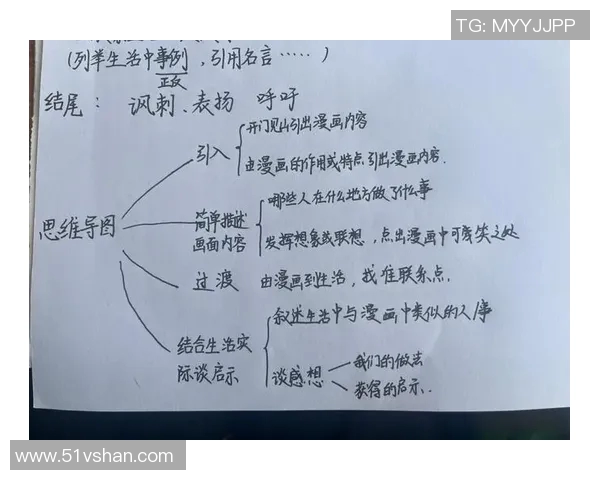 TG: MYYJJPP
(列举生活中事例，引用名言……)
正反
结尾： 讽刺、表扬 呼吁
思维导图
引入
开门见山引出漫画内容
由漫画的作用或特点引出漫画内容.
简单描述
画面内容
哪些人在什么地方做了什么事
发挥想象或联想，点出漫画中可笑之处
过渡 由漫画到生活，找准联系点.
结合生活实
际谈启示
叙述生活中与漫画中类似的人事
谈感想
我们的做法
获得的启示.
www.51vshan.com